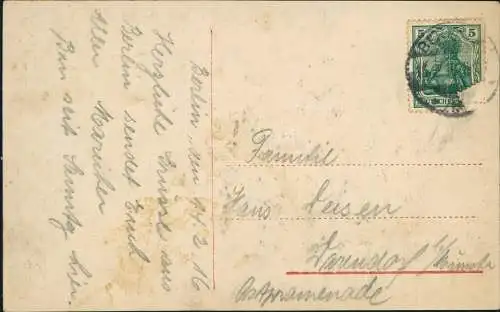 Berlin, den 14.2.16
Herzliche Grüsse aus
Berlin sendet Euch
Allen Mariechen
Bin seit Samstag hier.
Familie
Hans Leisen
Warendorf i/
Ostpromenade
5 5